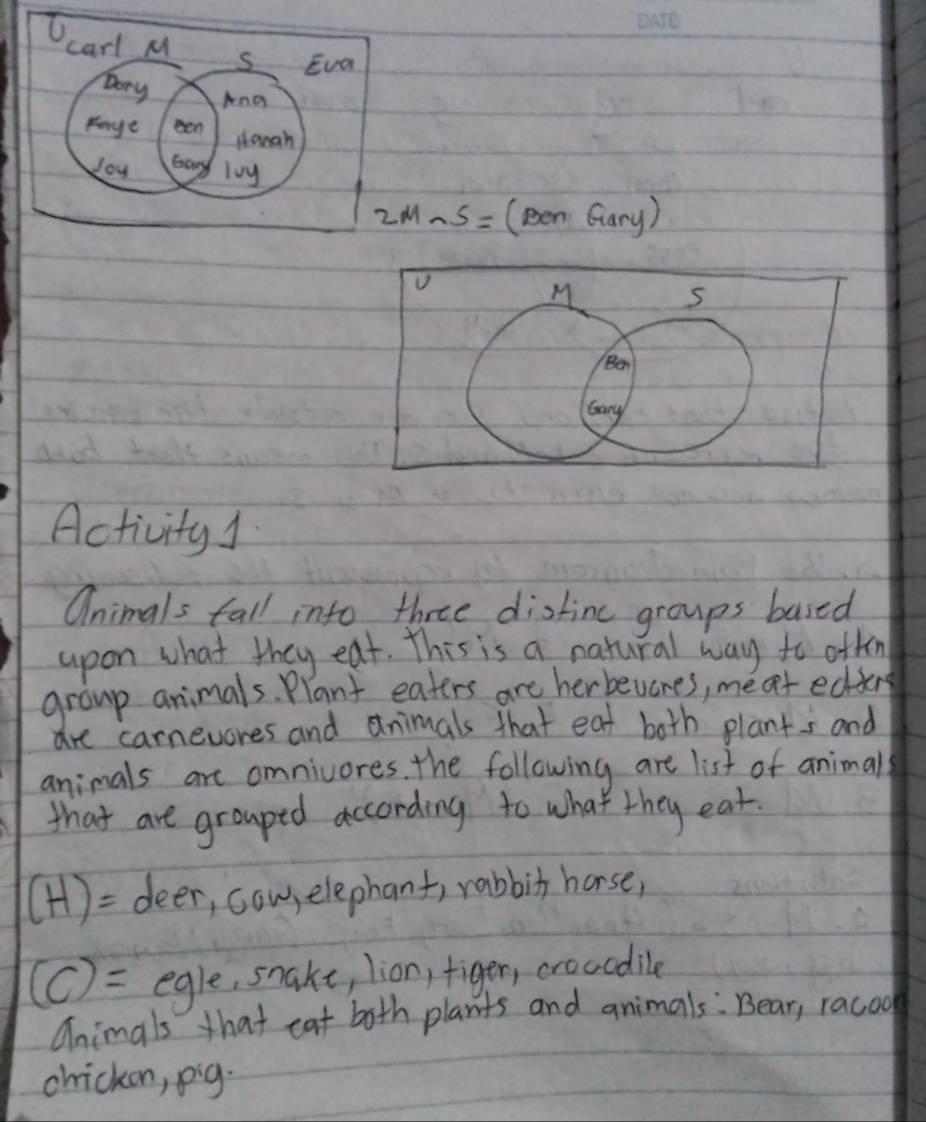 DATE
U
carl M S Eva
Dory
Ana
Kaye Ben Hanah
Joy Gary Ivy
2M ∩ S = (Ben Gary)
U
M S
Ben
Gary
Activity 1.
Animals fall into three distinc groups based
upon what they eat. This is a natural way to often
group animals. Plant eaters are herbevores, meat eaters
are carnevores and animals that eat both plant's and
animals are omnivores. the following are list of animals
that are grouped according to what they eat.
(H) = deer, cow, elephant, rabbit, horse,
(C) = egle, snake, lion, tiger, crocodile
Animals that eat both plants and animals: Bear, racoon
chicken, pig.